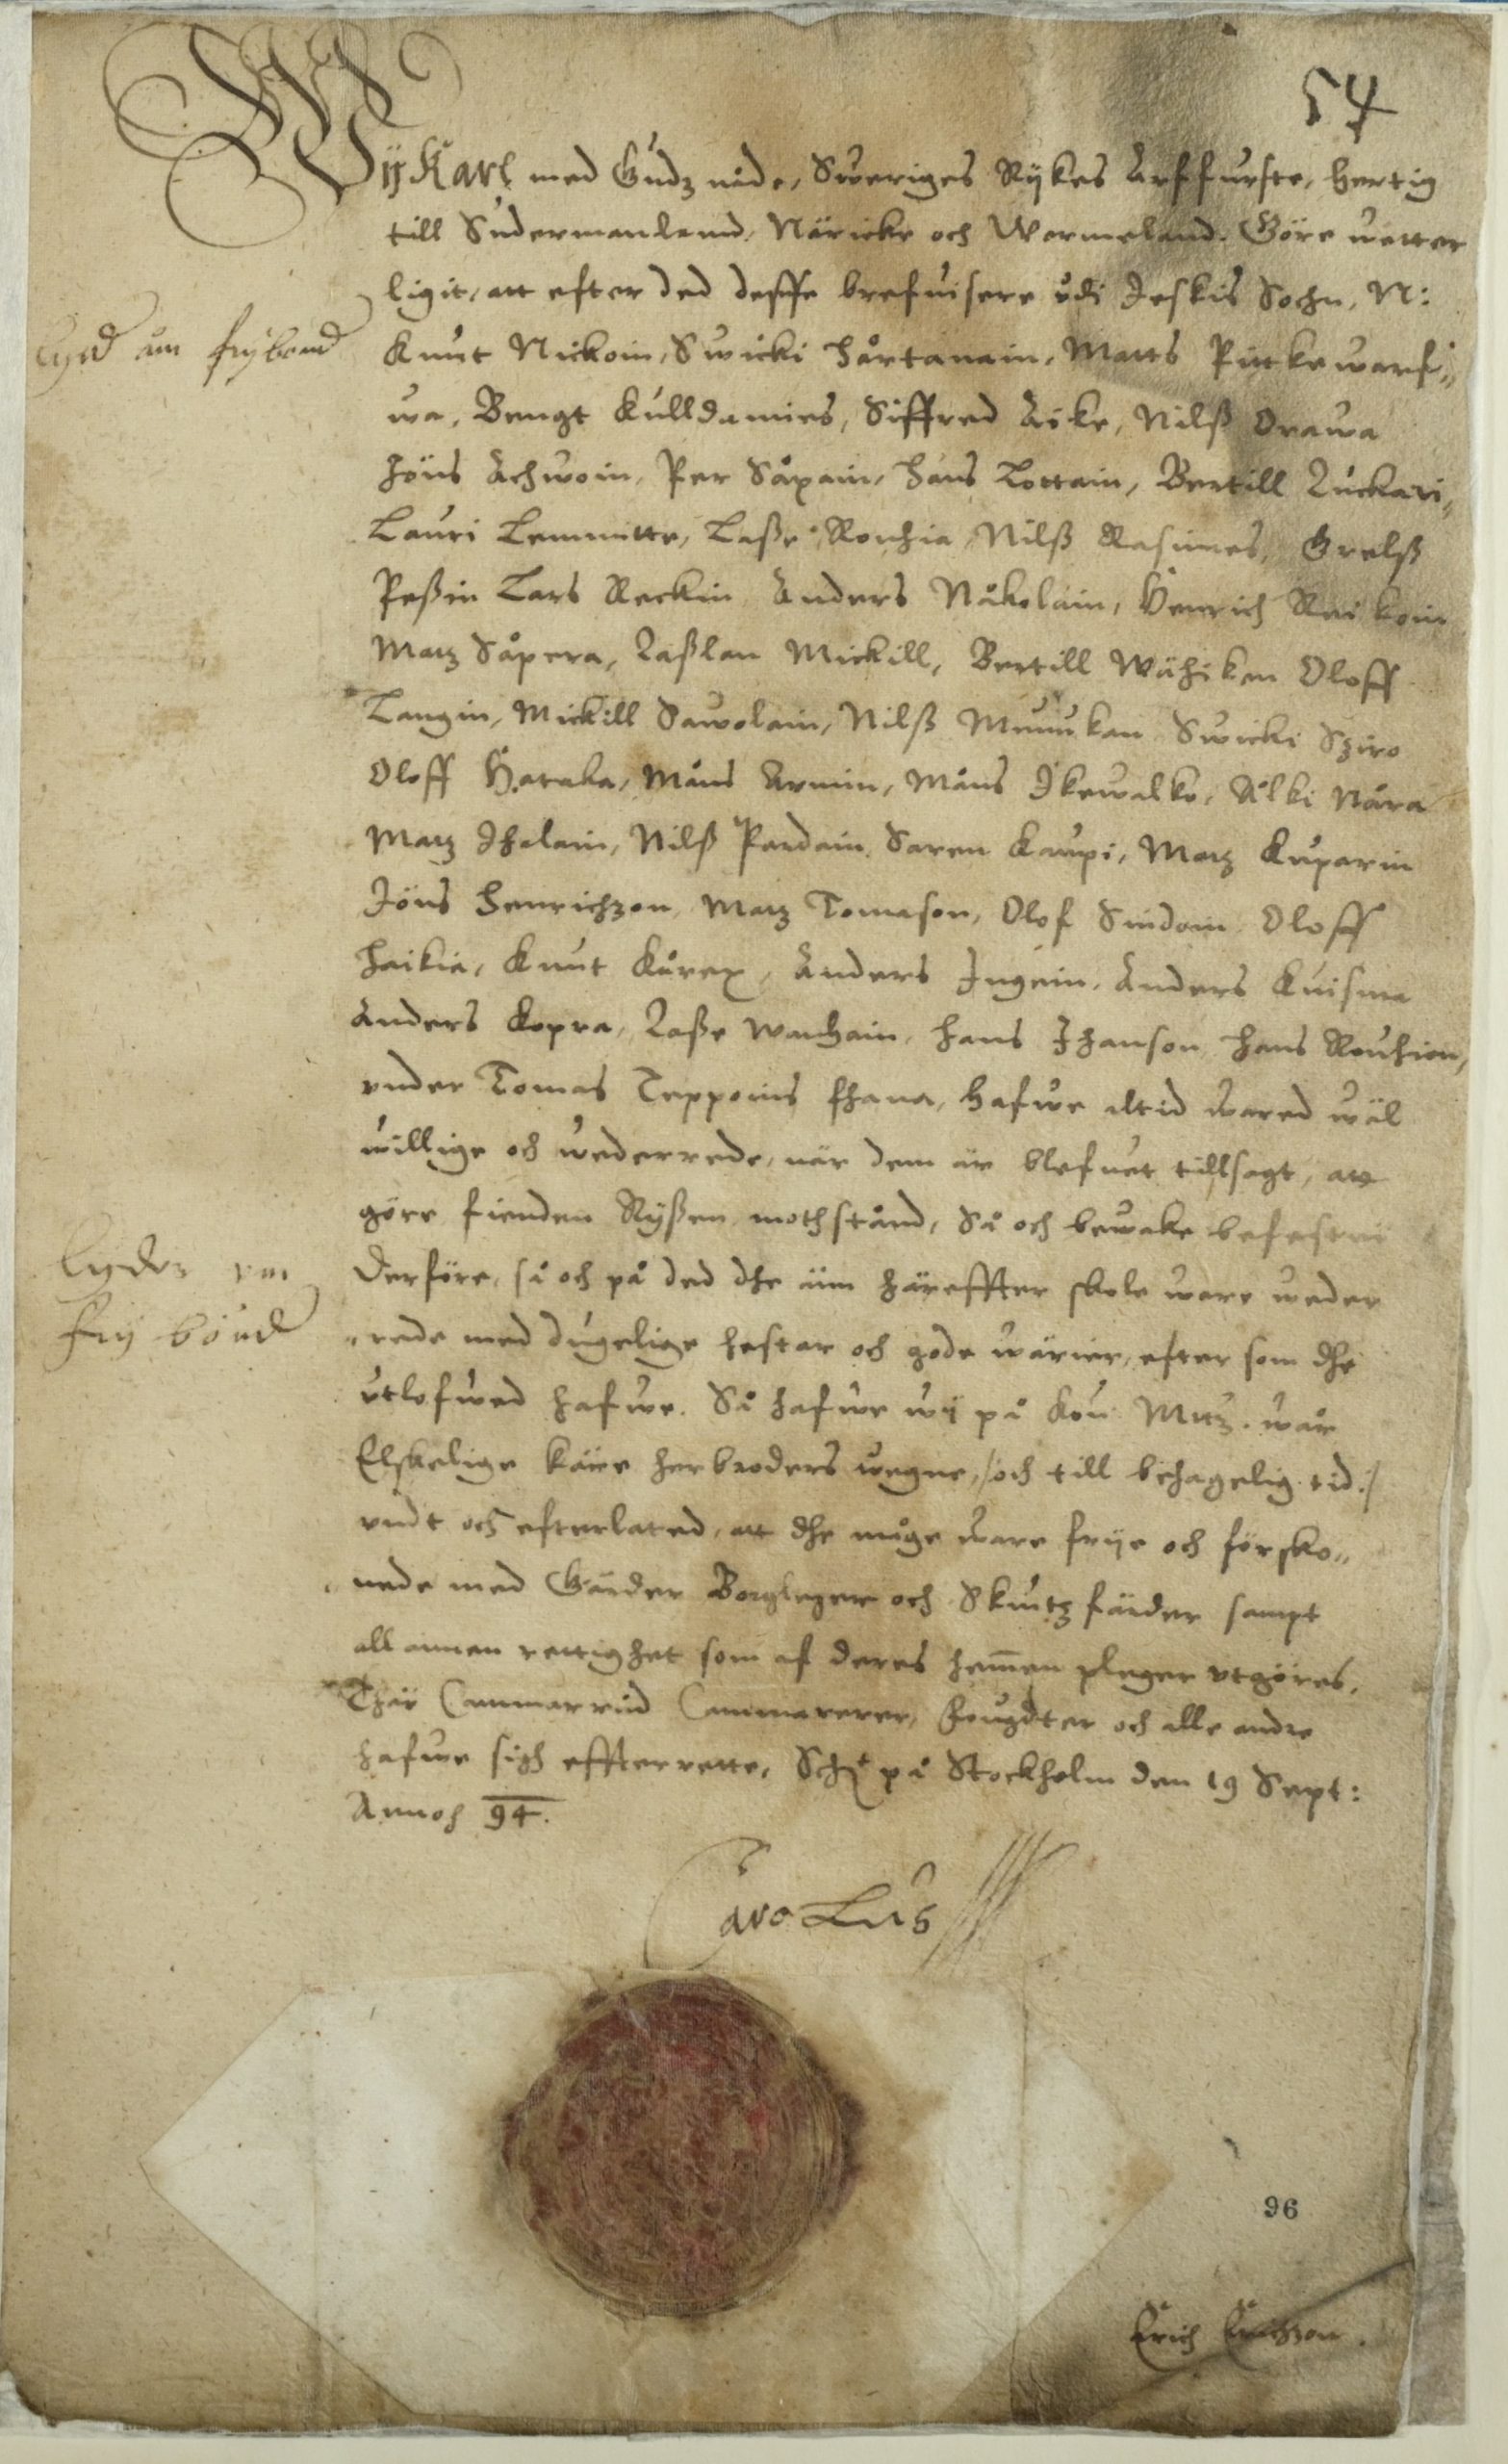 54
Wij Karl med Gudz nåde, Sweriges Rijkes Arffurste, Hertig
till Sudermanland, Näricke och Wermeland. Göre wetter
ligit, att efter ded desse brefuisere udi Jeskis Sochn, N:
lyd um frybond
Knut Nickoin, Swicki Hårtanain, Matts Pittkewarf„
wa, Bengt Kulldamies, Siffred Äike, Nilß Orawa
Jöns Achwoin, Per Såpain, Hans Tottain, Bertill Zuckari,
Lauri Lemmitte, Laße Rouhia, Nilß Rasimes, Grelß
Peßin Lars Reckin Anders Nåkolain, Henrich Reikoin
Matz Såpera, Laßlan Mickill, Bertill Wähiken Oloff
Tangin, Mickill Sawolain, Nilß Munukan Swicki Sziro
Oloff Hataka, Måns Armin, Måns Ikewalko, Ålki Nåra
Matz Ihalain, Nilß Pardain Saren Kaupi, Matz Kuparin
Jöns Henrichzon, Matz Tomason, Olof Sindoin Oloff
Haikia, Knut Kårex, Anders Ingein, Anders Kuisma
Anders Kopra, Laße Wanhain, Hans Jhanson Hans Rouhien,
under Tomas Teppoins fhana, Hafwe altid wared wäl
willige och wederrede, när dem är blefuet tillsagt, att
göre fienden Ryßen mothstånd, Så och bewake
lydes um
fry bönd
Derföre, så och på ded dhe äm häreffter skole ware weder
rede med dugelige hestar och gode wärier, efter som dhe
utlofwed hafwe. Så hafwe wij på Kon: Mttz. wår
Elskelige käre Herbroders wegne, /:och till behagelig tid:/
undt och efterlated, att dhe måge ware frije och försko„
nede med Gärder Borgleger och Skiutzfärder sampt
all annen rettighet som af deres hemmen pleger utgöres.
Thär Cammarråd Cammererer, Fougdter och alle andre
hafwe sigh effterrette. Sch: på Stockholm den 19 Sept:
Annoh 94.
Carolus
96
Erich Erichzon.